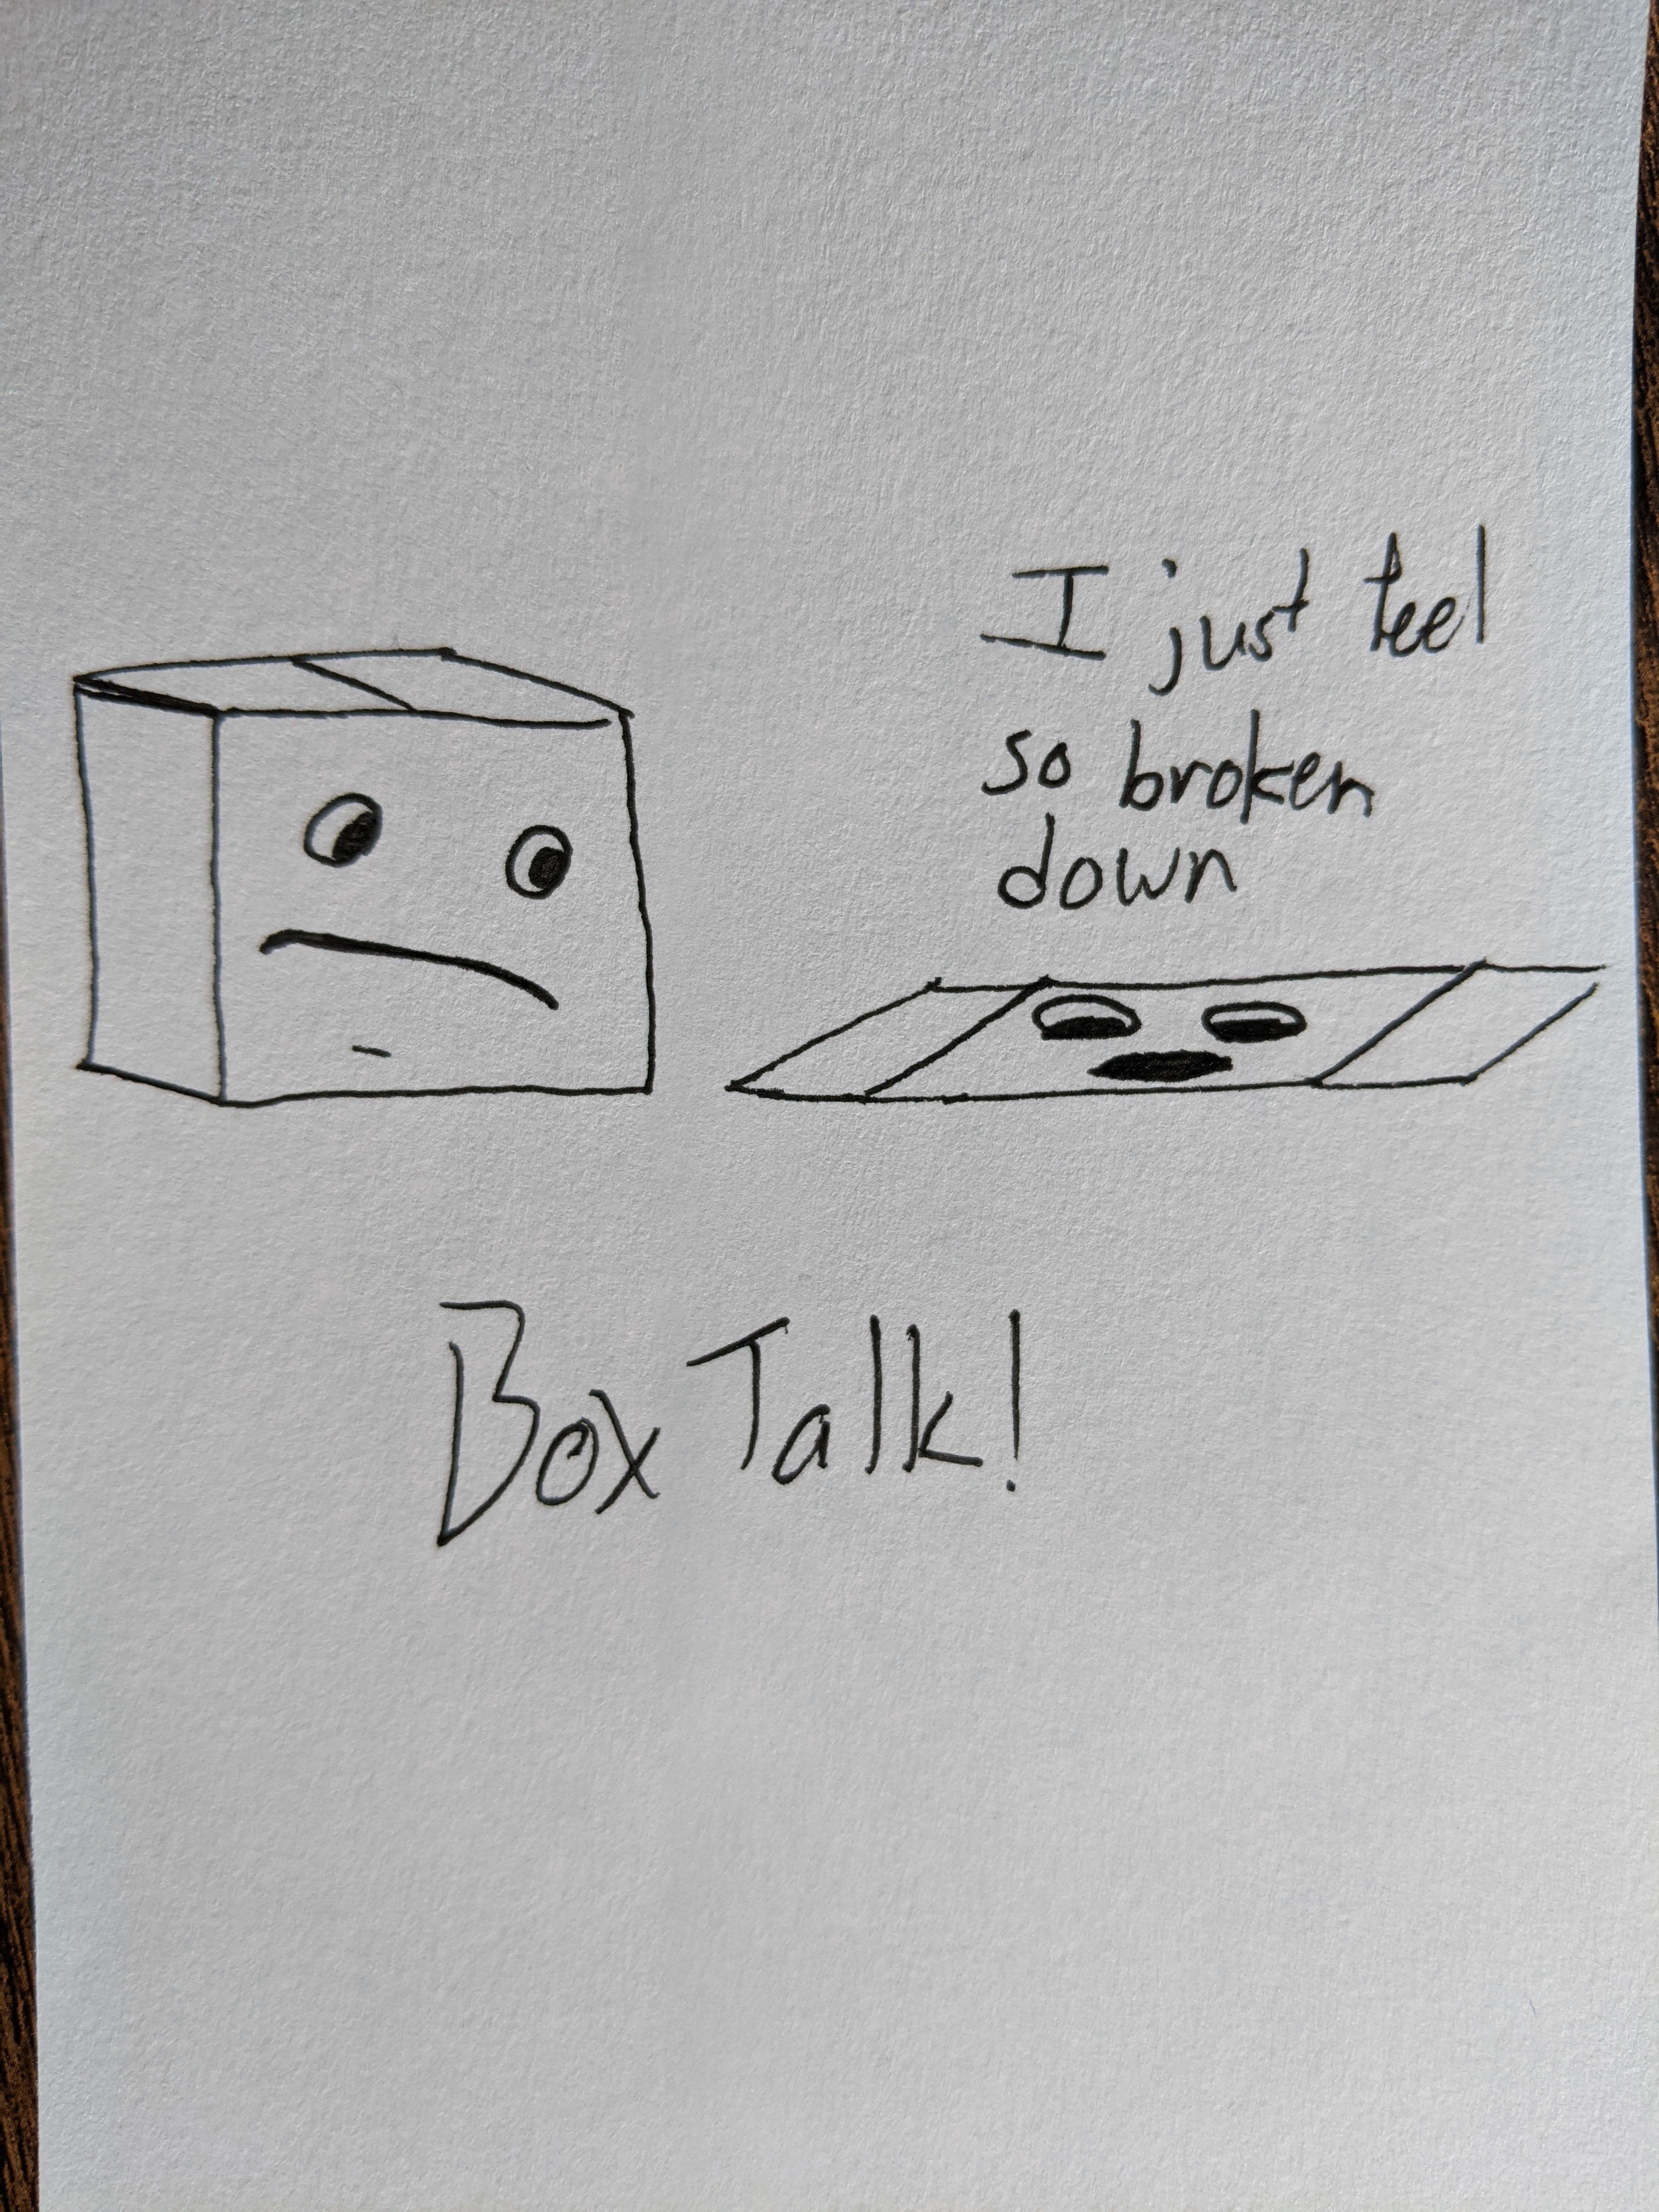 I just feel
so broken
down
Box Talk!